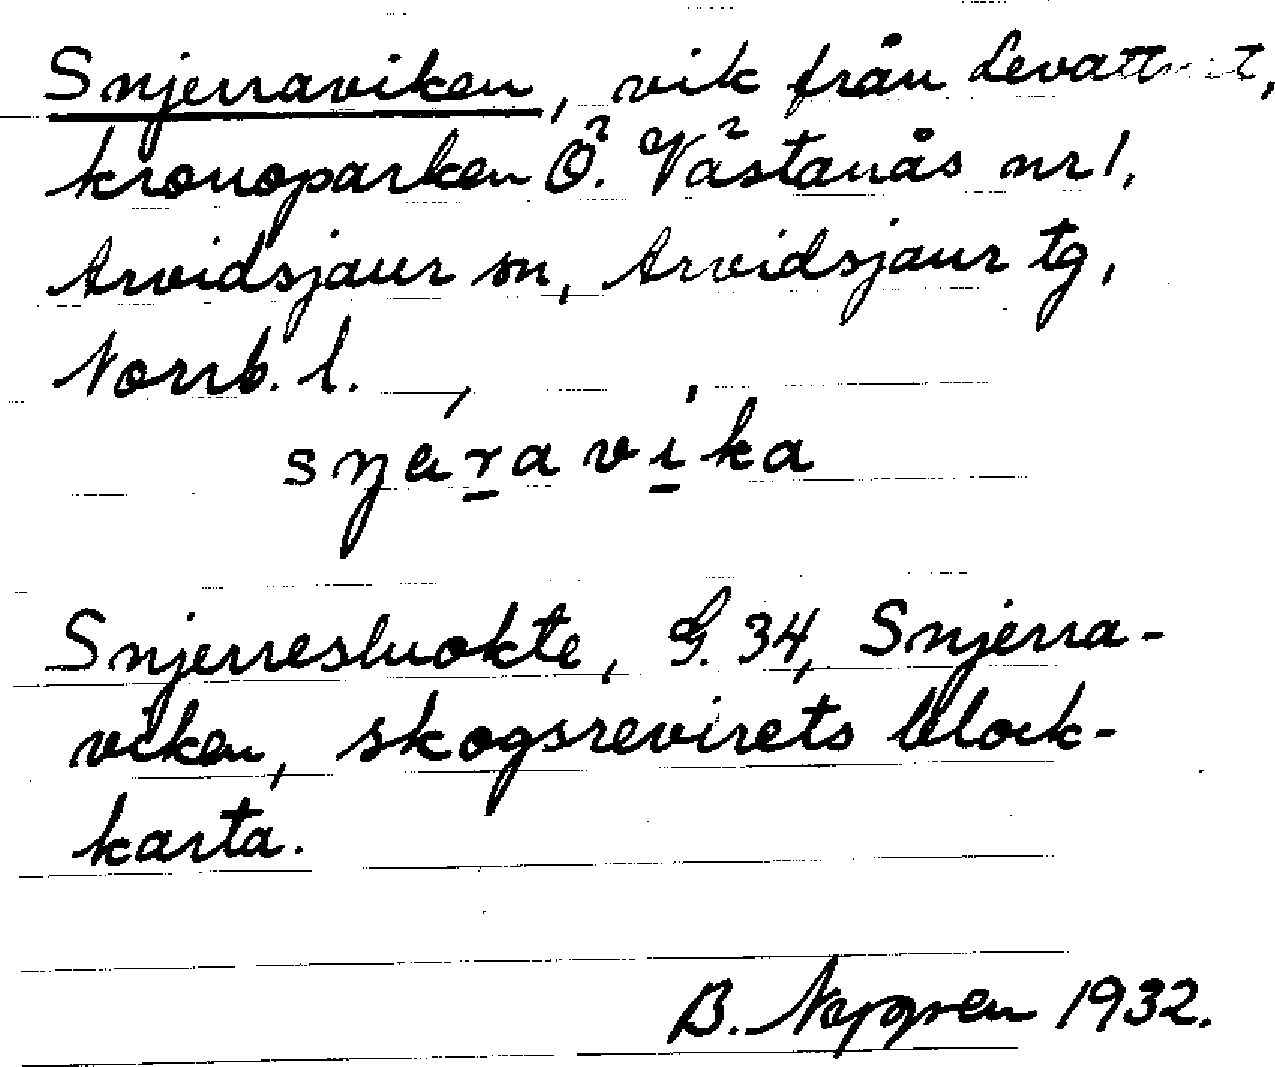 Snjerraviken, vik från Levattnet,
kronoparken Ö. Västanås nr 1,
Arvidsjaur sn, Arvidsjaur tg,
Norrb. l.
Snjerresluokte, G. 34, Snjerra-
viken, skogsrevirets block-
karta.
B. 1932.